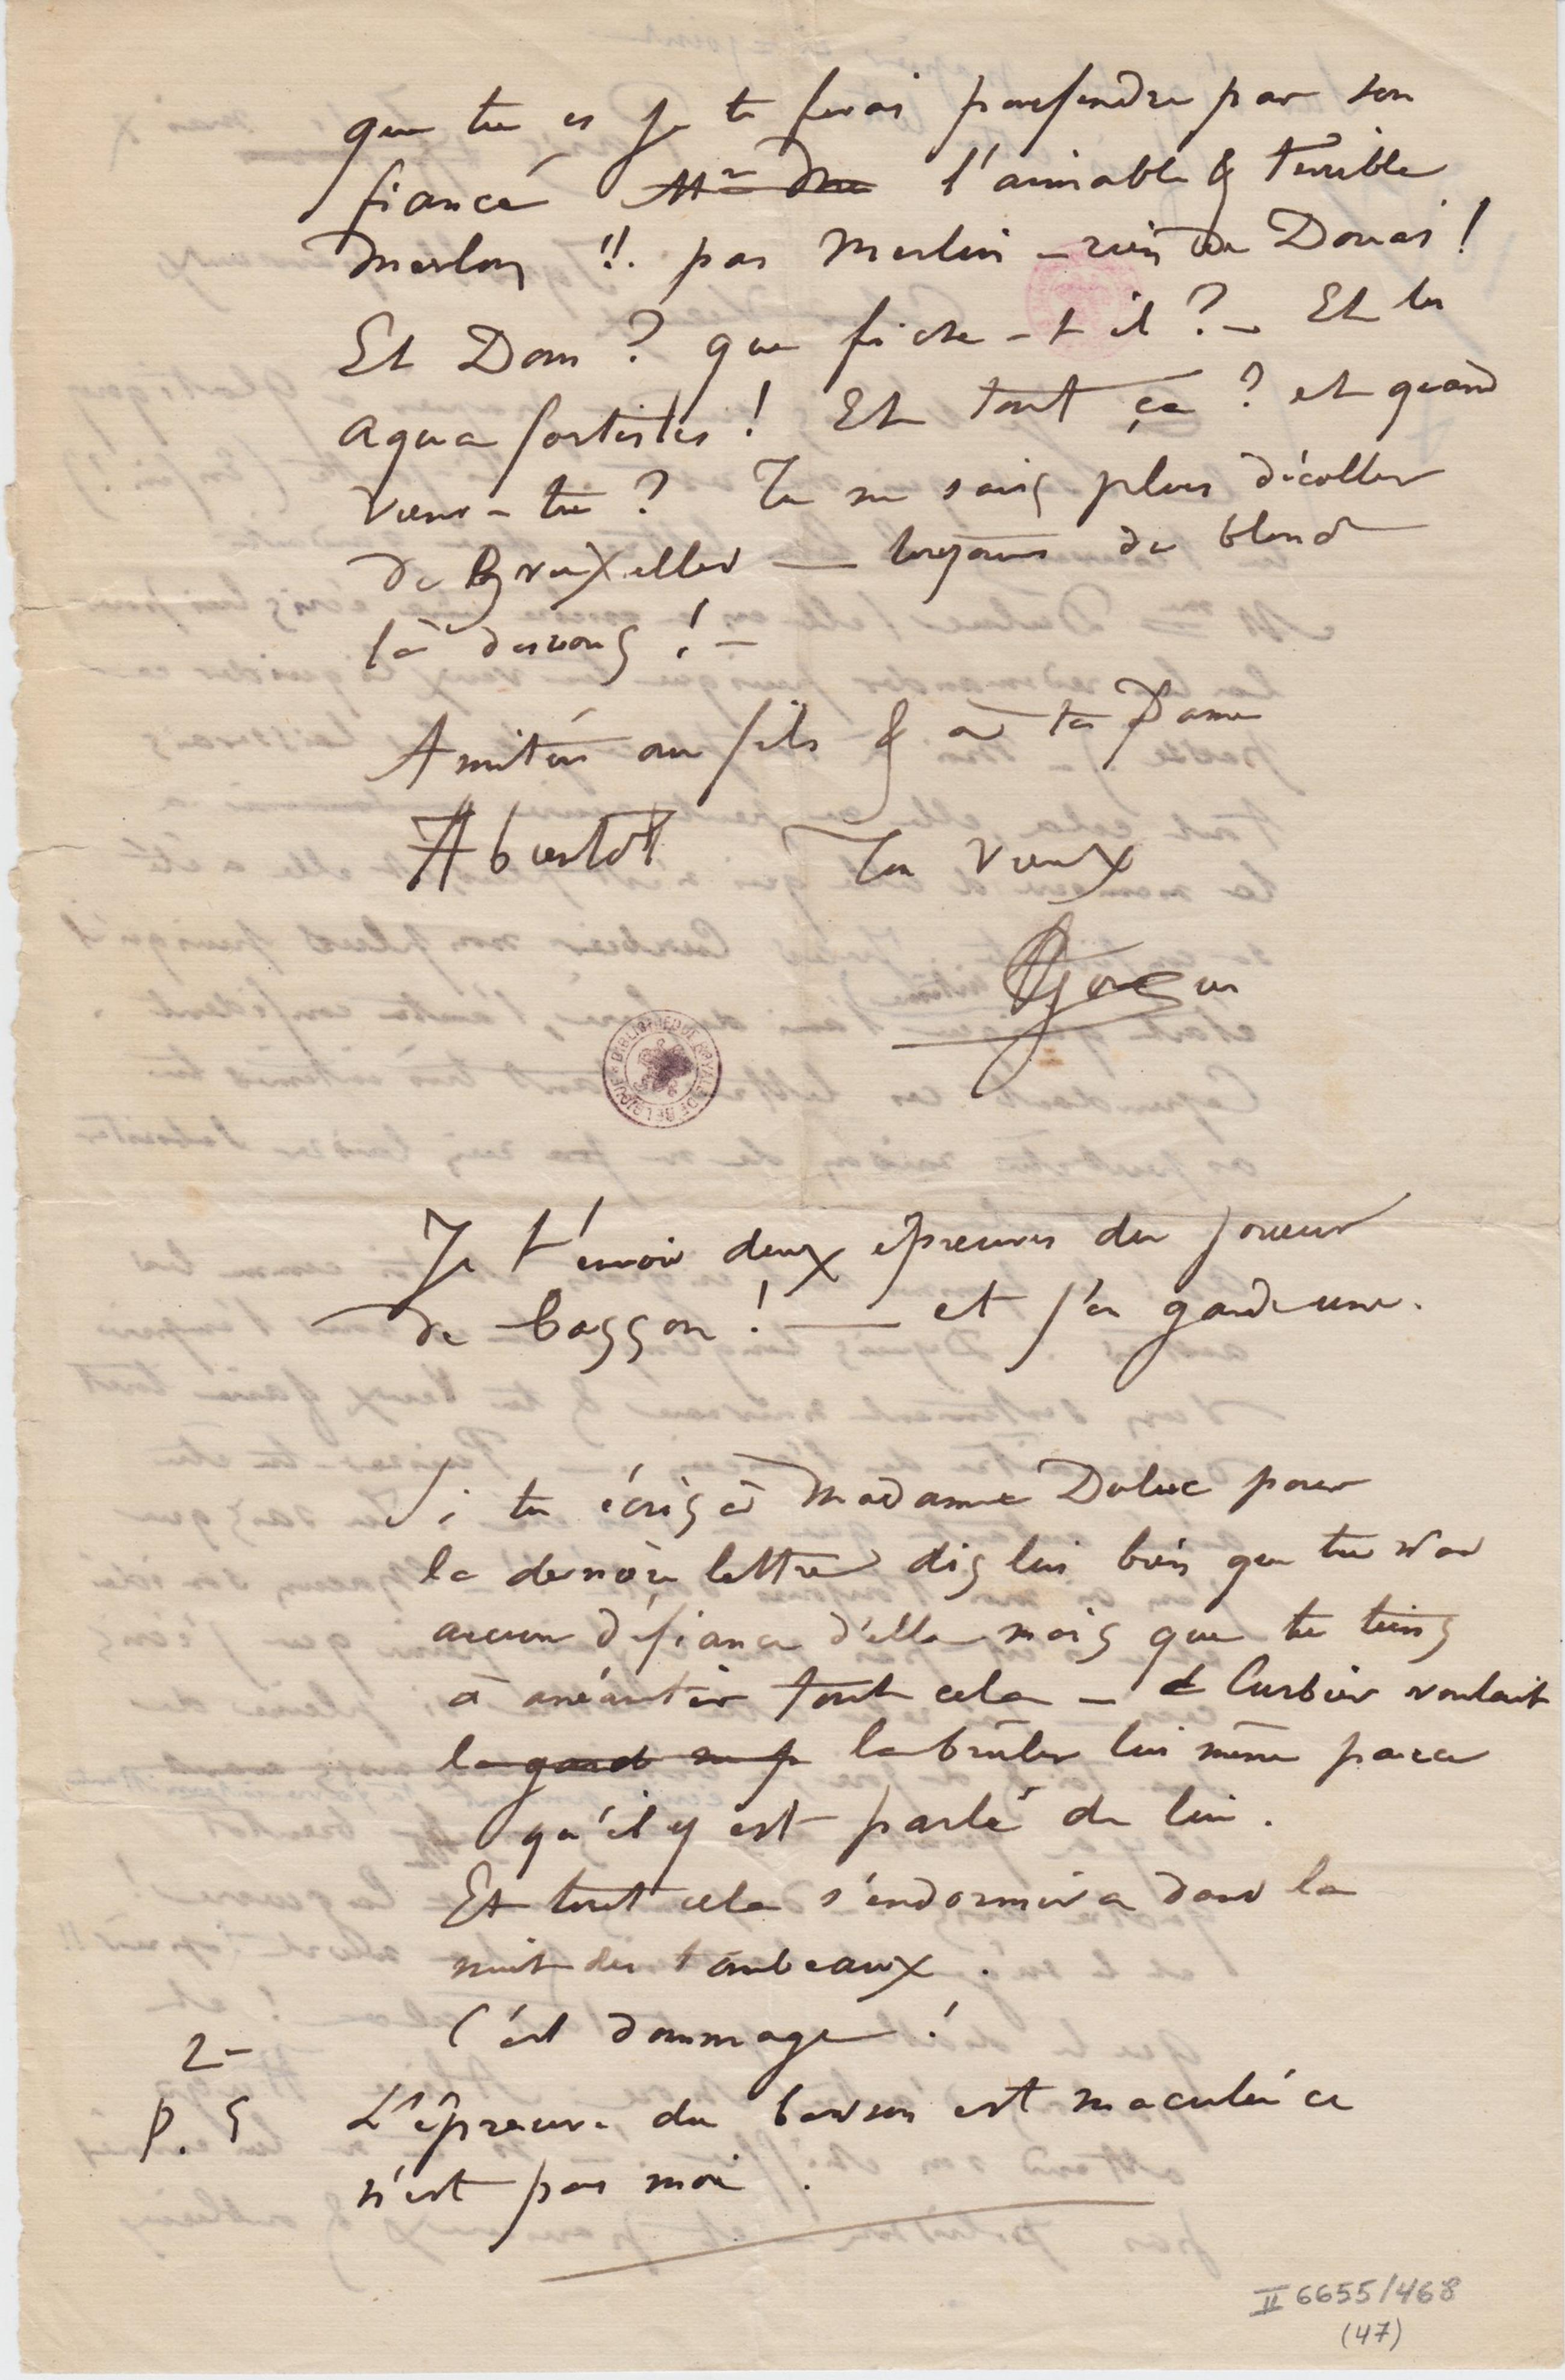 que tu es je te ferai pourfendre par son
fiancé Mr l'aimable & terrible
Merlon !! pas Merlin – rien de Douai !
Et Dom ? que fiche-t-il ? – Et les
aqua fortistes ! Et tout ça ? et quand
viens-tu ? Tu ne sais plus décoller
de Bruxelles — toujours du blond
là dessous ! –
Amitiés au fils & à ta Dame
A bientôt Ton vieux
Je t'envoie deux épreuves du joueur
de basson ! — et j'en garde une.
Si tu écris à Madame Duluc pour
la dernière lettre dis lui bien que tu n'as
aucune défiance d'elle mais que tu tiens
à anéantir tout cela – & Curbier voulait
la gard la brûler lui même parce
qu'il y est parlé de lui.
Et tout cela s'endormira dans la
nuit des tombeaux.
C'est dommage !
2–
P. S L'épreuve du basson est maculée ce
n'est pas moi.
BIBLIOTHEQUE ROYALE DE BELGIQUE
II 6655/468
(47)